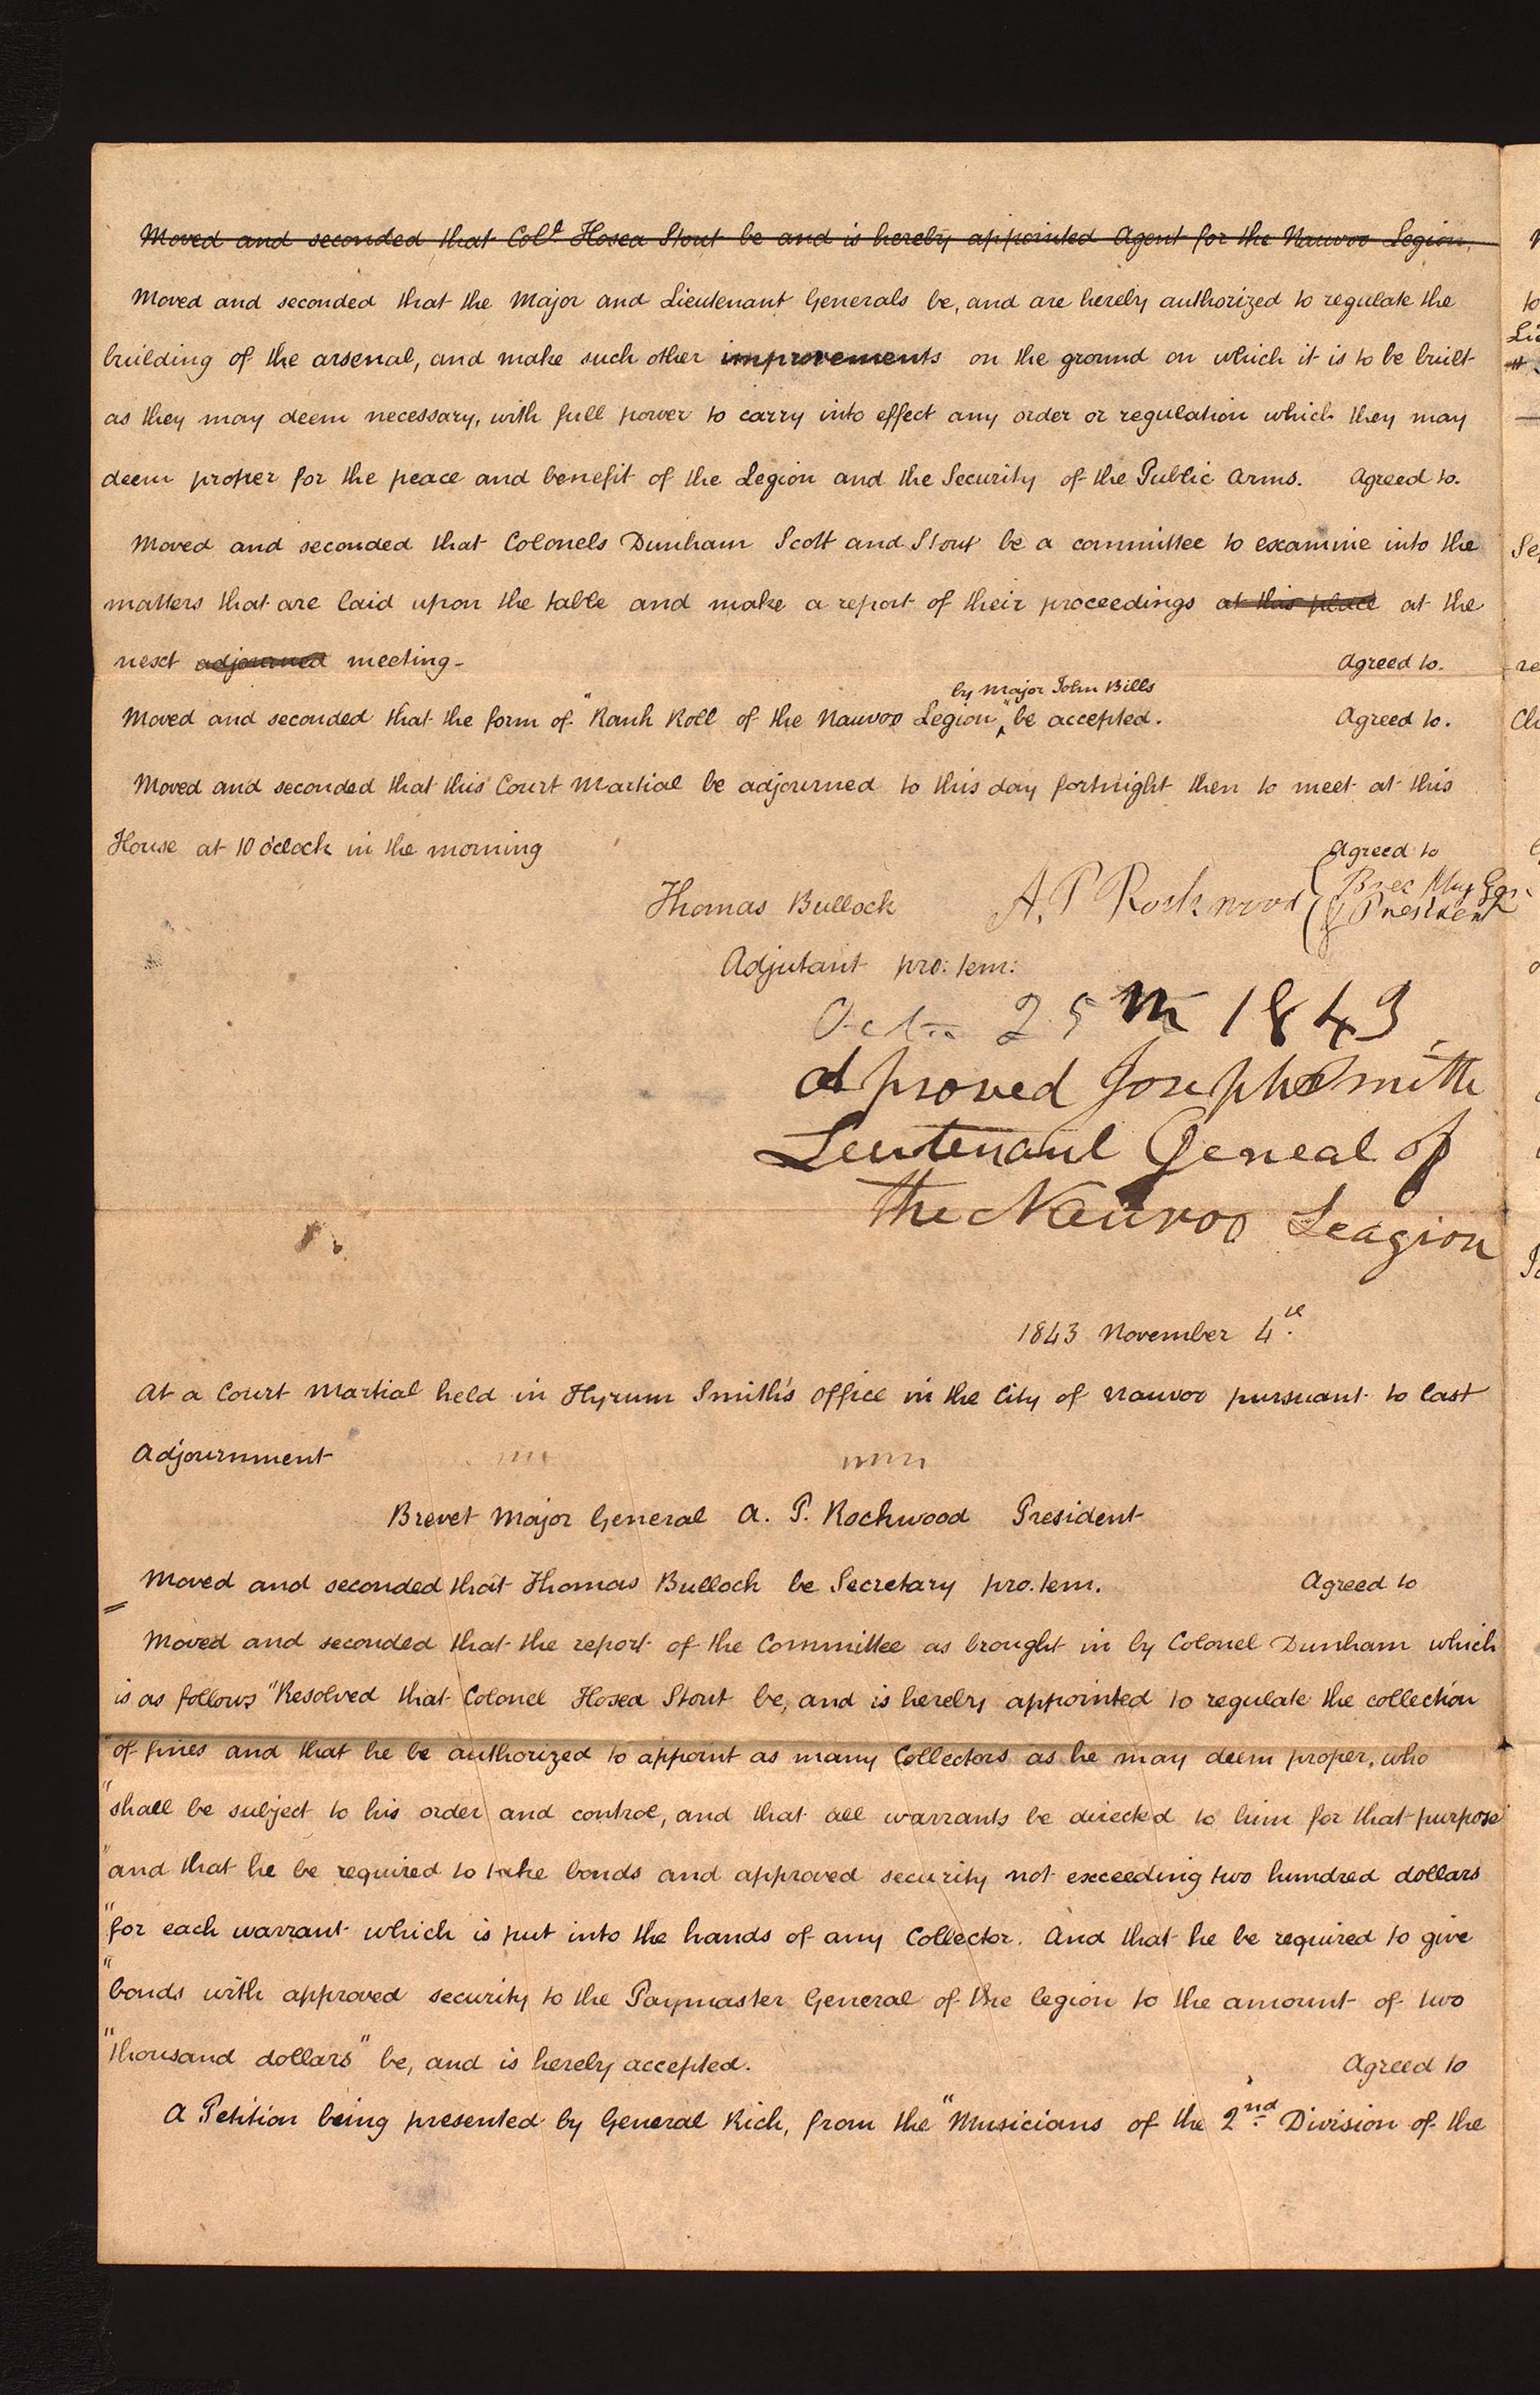 Moved and seconded that Col.l Hosea Stout be and is hereby appointed Agent for the Nauvoo Legion.
Moved and seconded that the Major and Lieutenant Generals be, and are hereby authorized to regulate the
building of the arsenal, and make such other improvements on the ground on which it is to be built
as they may deem necessary, with full power to carry into effect any order or regulation which they may
deem proper for the peace and benefit of the Legion and the Security of the Public Arms. Agreed to.
Moved and seconded that Colonels Dunham Scott and Stout be a committee to examine into the
matters that are laid upon the table and make a report of their proceedings at this place at the
next adjourned meeting- Agreed to.
by Major John Bills
Moved and seconded that the form of "Rank Roll of the Nauvoo Legion" be accepted. Agreed to.
Moved and seconded that this Court Martial be adjourned to this day fortnight then to meet at this
House at 10 o'clock in the morning Agreed to
Thomas Bullock A. P Rockwood Brev Maj Gen
& President
Adjutant pro: tem:
Oct 25th 1843
Aproved Joseph Smith
Leutenant Geneal of
the Nauvoo Leagion
1843 November 4th.
At a Court Martial held in Hyrum Smith's office in the City of Nauvoo pursuant to last
Adjournment
Brevet Major General A. P. Rockwood President
Moved and seconded that Thomas Bullock be Secretary pro. tem. Agreed to
Moved and seconded that the report of the Committee as brought in by Colonel Dunham which
is as follows "Resolved that Colonel Hosea Stout be, and is hereby appointed to regulate the collection
"of fines and that he be authorized to appoint as many Collectors as he may deem proper, who
"shall be subject to his order and control, and that all warrants be directed to him for that purpose
"and that he be required to take bonds and approved security not exceeding two hundred dollars
"for each warrant which is put into the hands of any Collector. And that he be required to give
"bonds with approved security to the Paymaster General of the legion to the amount of two
"thousand dollars" be, and is hereby accepted. Agreed to
A Petition being presented by General Rich, from the "Musicians of the 2nd Division of the